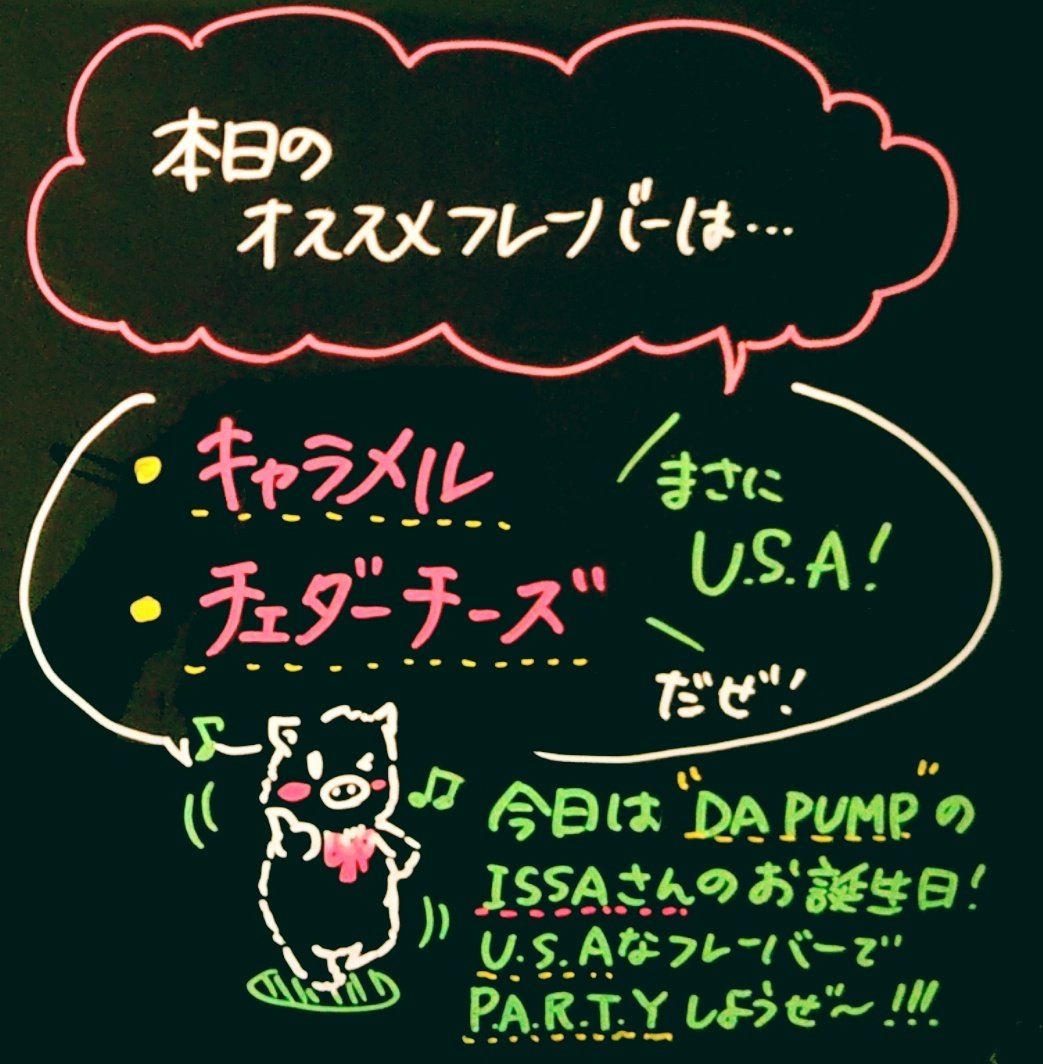 本日の
オススメフレーバーは…
・キャラメル
・チェダーチーズ
まさに
U.S.A!
だぜ!
今日は"DA PUMP"の
ISSAさんのお誕生日!
U.S.Aなフレーバーで
P.A.R.T.Yしようぜ〜!!!